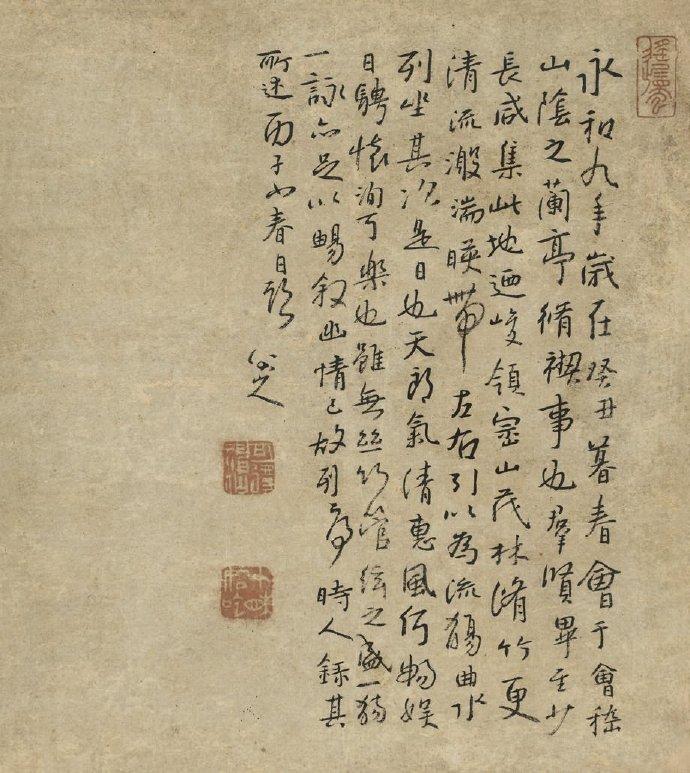 永和九年歲在癸丑暮春會于會稽
山陰之蘭亭脩禊事也羣賢畢至少
長咸集此地迺峻領崇山茂林脩竹更
清流激湍暎帶左右引以為流觴曲水
列坐其次是日也天朗氣清惠風和暢娛
日騁懷洵可樂也雖無絲竹管絃之盛一觴
一詠亦足以暢敘幽情已故列序時人錄其
所述丙子小春日 八大山人
可得神仙